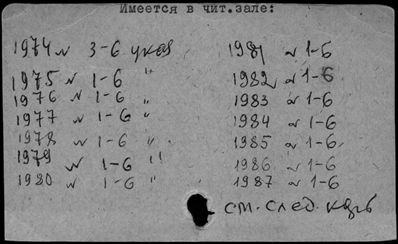 Имеется в чит.зале:
1974 № 3-6 указ
1975 № 1-6 "
1976 № 1-6 "
1977 № 1-6 "
1978 № 1-6 "
1979 № 1-6 "
1980 № 1-6 "
1981 № 1-6
1982 № 1-6
1983 № 1-6
1984 № 1-6
1985 № 1-6
1986 № 1-6
1987 № 1-6
см. след.